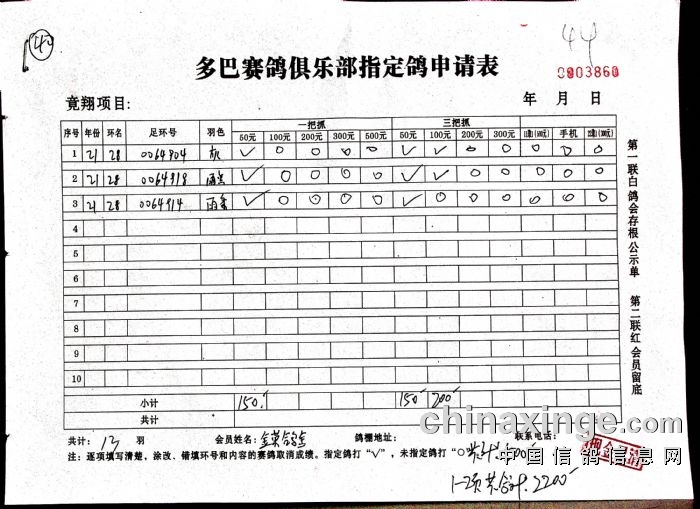 44
多巴赛鸽俱乐部指定鸽申请表
0003860
竞翔项目:
年 月 日
序号 年份 环名 足环号 羽色 一把抓 三把抓
50元 100元 200元 300元 500元 50元 100元 200元 300元 手机
1 21 28 0064904 灰 ✓ 0 0 0 0 ✓ ✓ 0 0 0 0 0
2 21 28 0064918 雨点 ✓ 0 0 0 0 ✓ ✓ 0 0 0 0 0
3 21 28 0064914 雨点 ✓ 0 0 0 0 ✓ 0 0 0 0 0 0
4
5
6
7
8
9
10
小计 150 150 200
共计
第一联白鸽会存根公示单 第二联红会员留底
共计: 13 羽 会员姓名: 鸽棚地址: 联系电话:
注: 逐项填写清楚,涂改、错填环号和内容的赛鸽取消成绩。指定鸽打“√”,未指定鸽打“○”
共计: 500
1-2项共合计: 2200
chinaxinge.com
中国信鸽信息网